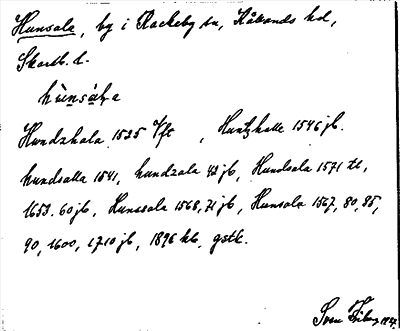 Hunsala, by i Rackeby sn, Kållands hd,
Skarab. l.
hùnsáɫa
Hundzhala 1535 Vft, Huntzhalle 1546 jb.
hundsalla 1541, hundzala 42 jb, Hundsala 1571 tl,
1653. 60 jb, Hunssala 1568, 71 jb, Hunsala 1567, 80, 85,
90, 1600, 1710 jb, 1896 kb. gstk.
Sven